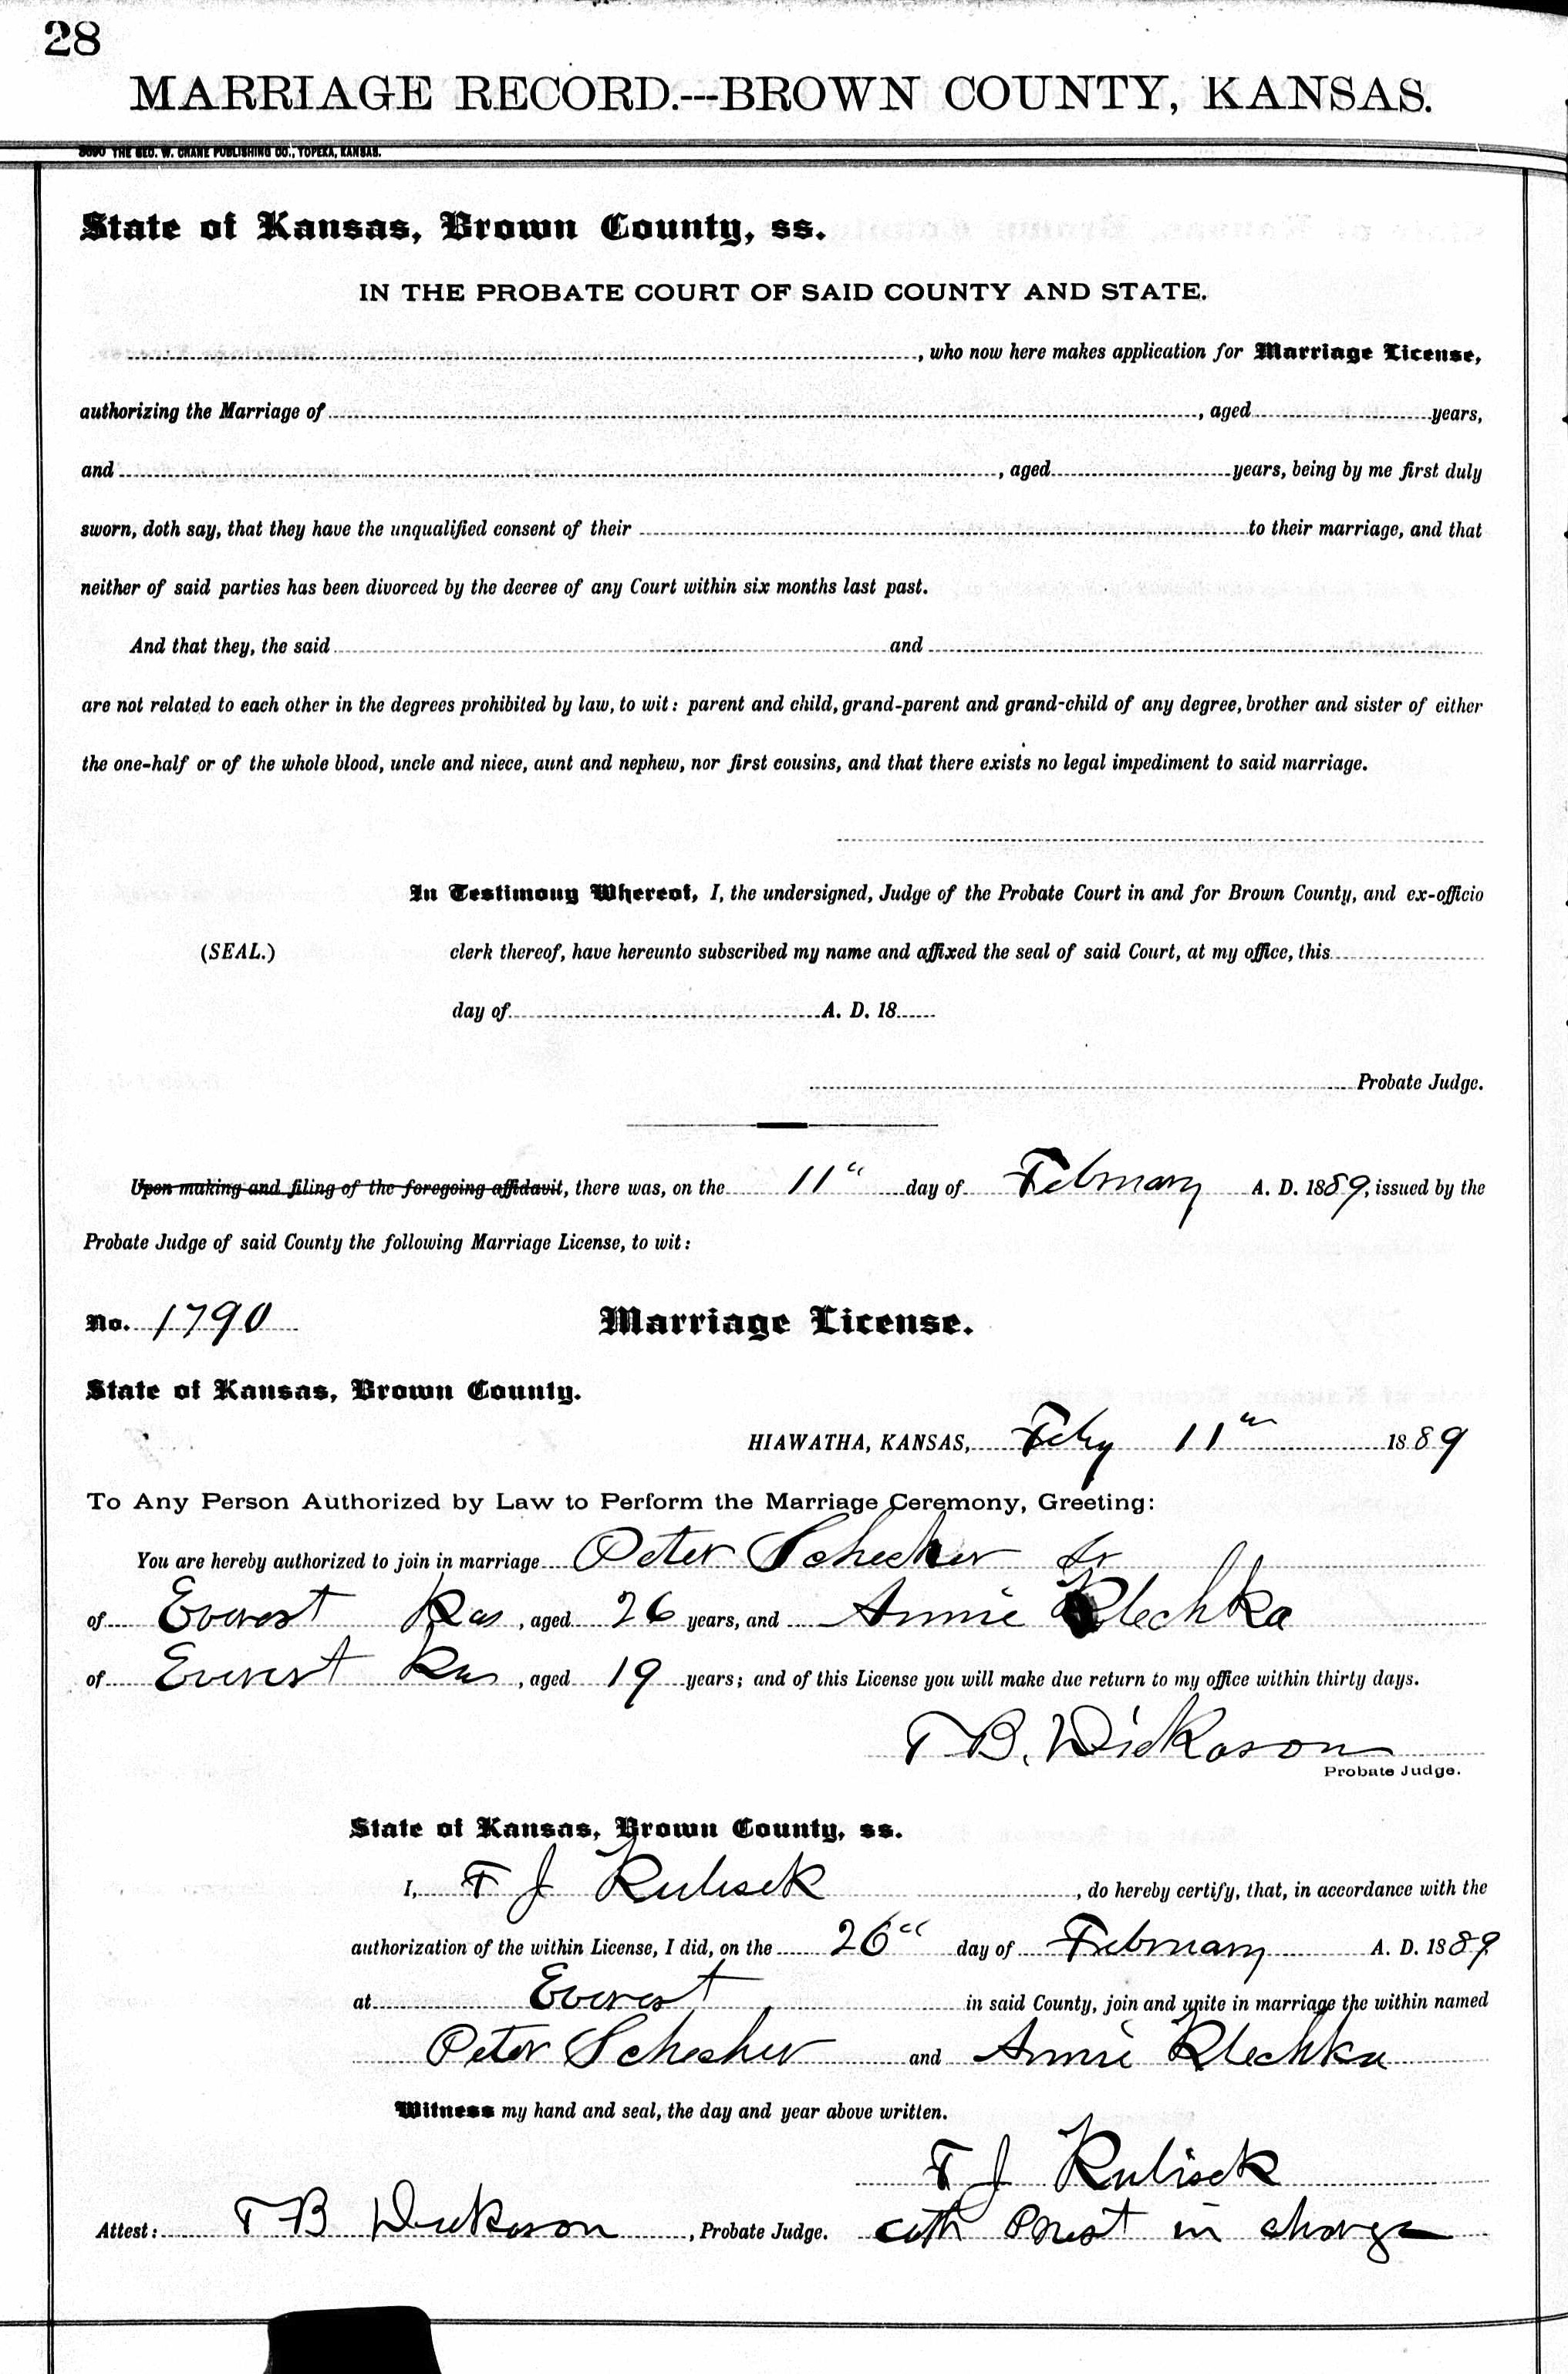 28
MARRIAGE RECORD.---BROWN COUNTY, KANSAS.
THE GEO. W. CRANE PUBLISHING CO., TOPEKA, KANSAS.
State of Kansas, Brown County, ss.
IN THE PROBATE COURT OF SAID COUNTY AND STATE.
, who now here makes application for Marriage License,
authorizing the Marriage of , aged years,
and , aged years, being by me first duly
sworn, doth say, that they have the unqualified consent of their to their marriage, and that
neither of said parties has been divorced by the decree of any Court within six months last past.
And that they, the said and
are not related to each other in the degrees prohibited by law, to wit: parent and child, grand-parent and grand-child of any degree, brother and sister of either
the one-half or of the whole blood, uncle and niece, aunt and nephew, nor first cousins, and that there exists no legal impediment to said marriage.
In Testimony Whereof, I, the undersigned, Judge of the Probate Court in and for Brown County, and ex-officio
(SEAL.) clerk thereof, have hereunto subscribed my name and affixed the seal of said Court, at my office, this
day of A. D. 18
Probate Judge.
Upon making and filing of the foregoing affidavit, there was, on the 11" day of February A. D. 1889, issued by the
Probate Judge of said County the following Marriage License, to wit:
No. 1790 Marriage License.
State of Kansas, Brown County.
HIAWATHA, KANSAS, Feby 11" 1889
To Any Person Authorized by Law to Perform the Marriage Ceremony, Greeting:
You are hereby authorized to join in marriage Peter Schecher Jr
of Everest Kas, aged 26 years, and Annie Klechka
of Everest Kas, aged 19 years; and of this License you will make due return to my office within thirty days.
T B. Dickason
Probate Judge.
State of Kansas, Brown County, ss.
I, F J Rulisek, do hereby certify, that, in accordance with the
authorization of the within License, I did, on the 26" day of February A. D. 1889
at Everest in said County, join and unite in marriage the within named
Peter Schecher and Annie Klechka
Witness my hand and seal, the day and year above written.
F J Rulisek
Attest: T B Dickason, Probate Judge. cath Priest in charge